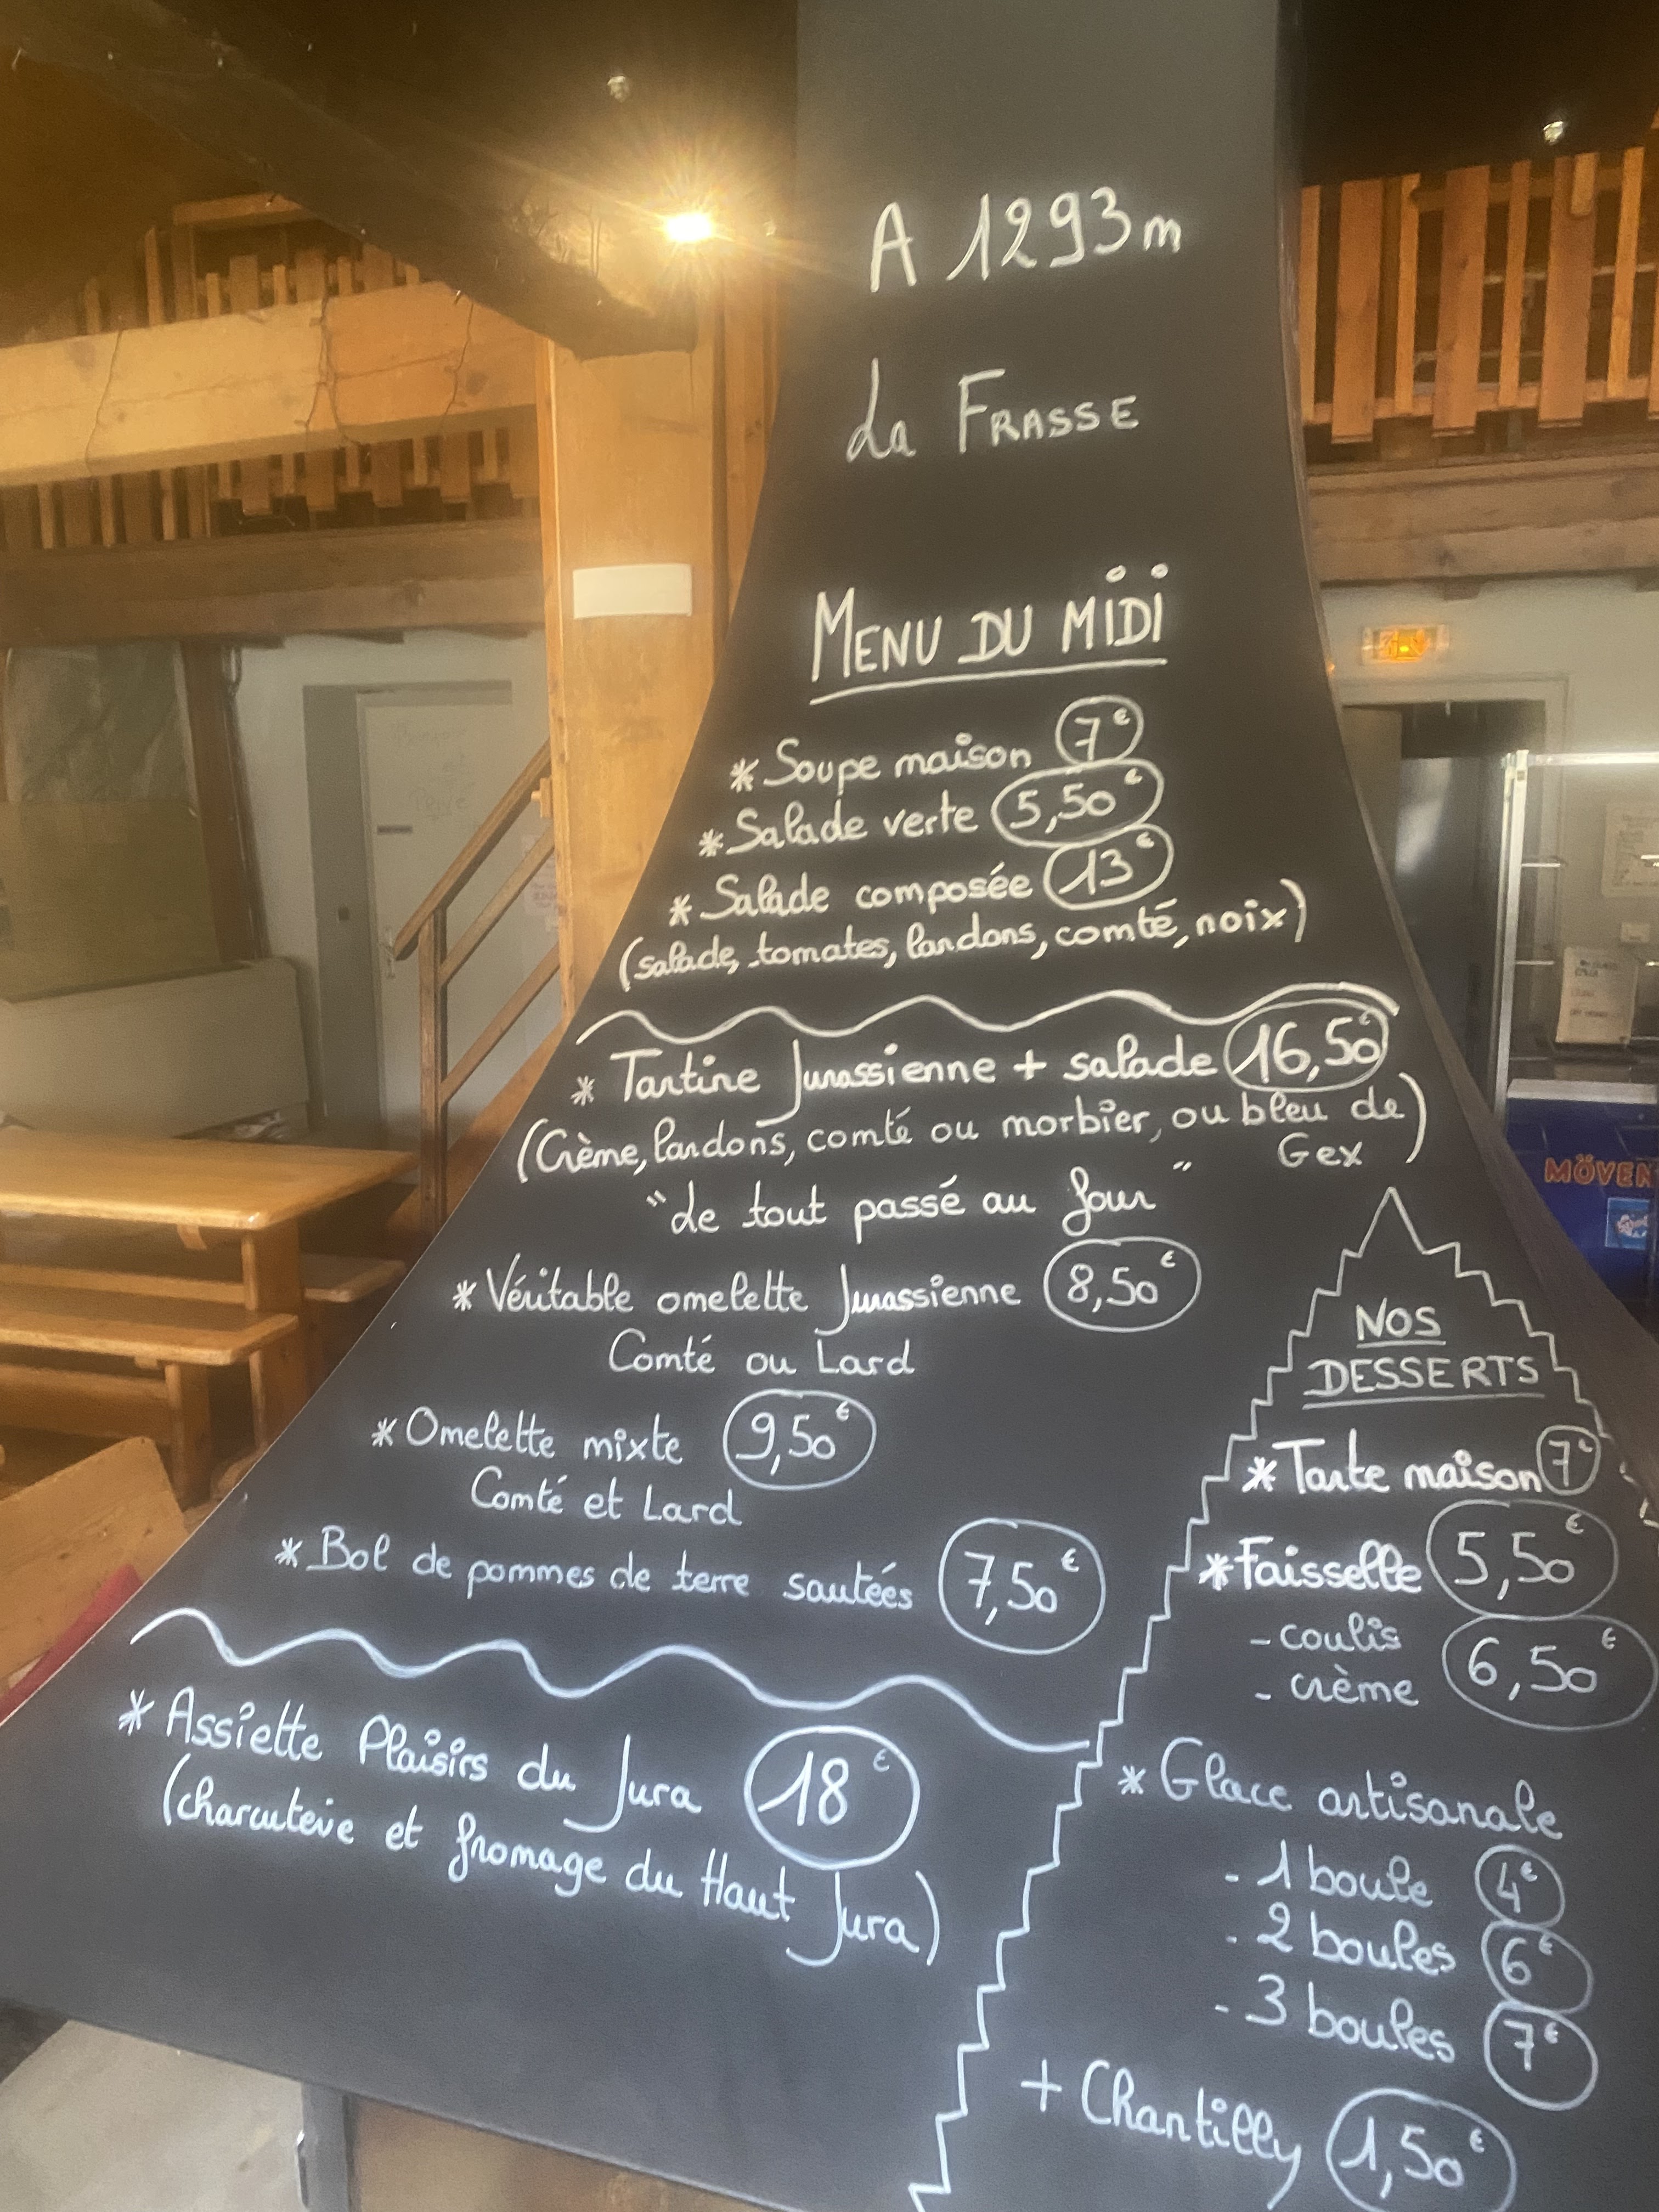 A 1293m
La FRASSE
MENU DU MIDI
* Soupe maison 7€
* Salade verte 5,50€
* Salade composée 13€
(salade, tomates, lardons, comté, noix)
* Tartine Jurassienne + salade 16,50€
(Crème, lardons, comté ou morbier, ou bleu de
Gex)
"Le tout passé au four"
* Véritable omelette Jurassienne 8,50€
Comté ou Lard
* Omelette mixte 9,50€
Comté et Lard
* Bol de pommes de terre sautées 7,50€
* Assiette Plaisirs du Jura 18€
(charcuterie et fromage du Haut Jura)
NOS
DESSERTS
* Tarte maison 7€
* Faisselle 5,50€
- coulis
- crème 6,50€
* Glace artisanale
- 1 boule 4€
- 2 boules 6€
- 3 boules 7€
+ Chantilly 1,50€
MÖVEN